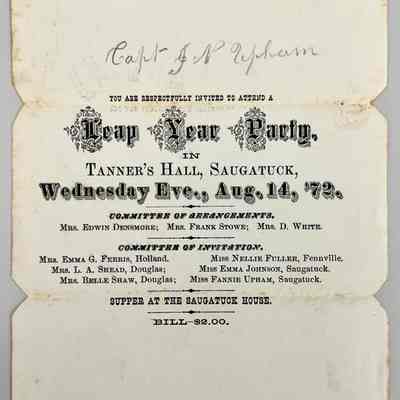 Capt J N Upham
YOU ARE RESPECTFULLY INVITED TO ATTEND A
Leap Year Party,
IN
TANNER'S HALL, SAUGATUCK,
Wednesday Eve., Aug. 14, '72.
COMMITTEE OF ARRANGEMENTS.
MRS. EDWIN DENSMORE; MRS. FRANK STOWE; MRS. D. WHITE.
COMMITTEE OF INVITATION.
MRS. EMMA G. FERRIS, Holland. MISS NELLIE FULLER, Fennville.
MRS. L. A. SHEAD, Douglas; MISS EMMA JOHNSON, Saugatuck.
MRS. BELLE SHAW, Douglas; MISS FANNIE UPHAM, Saugatuck.
SUPPER AT THE SAUGATUCK HOUSE.
BILL-$2.00.